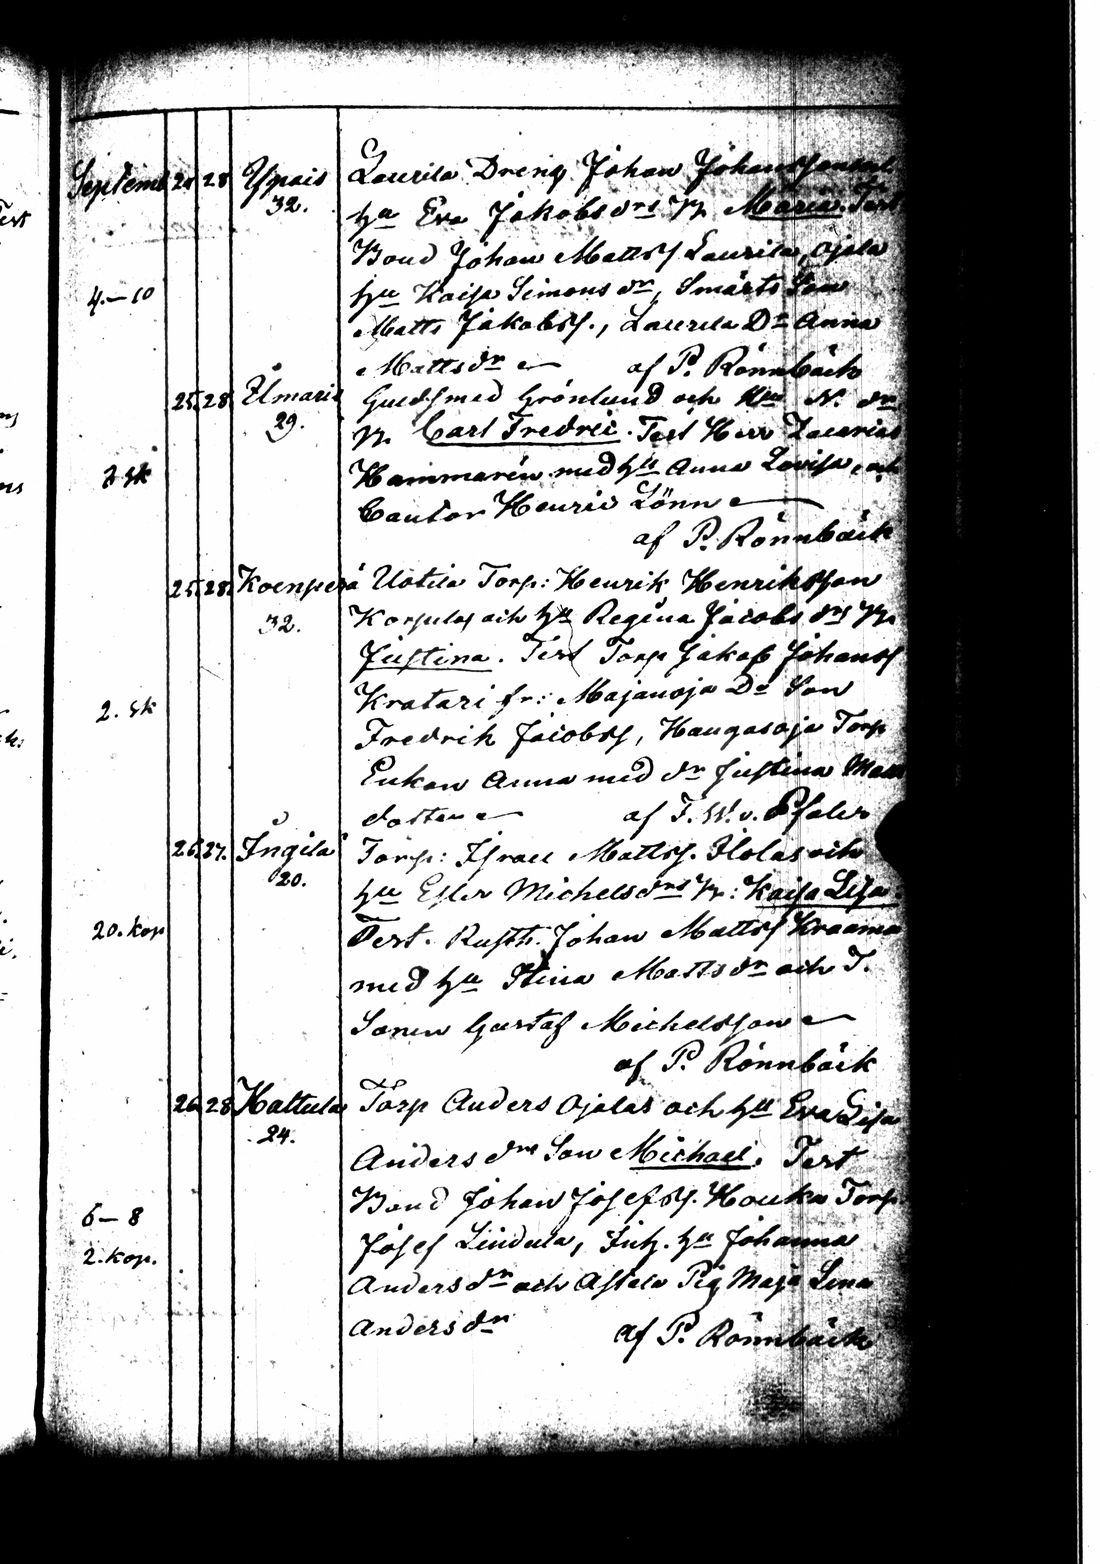 Septemb 24 28 Ypais Laurila Dreng Johan Johansson och
32. hu Eva Jakobsdrs Br Maria. Test
Bond Johan Mattss Laurila, Ojala
4.–10 hu Kaisa Simonsdr, Smärts Son
Matts Jakobss., Laurila Dr Anna
Mattsdr af P. Rönnbäck
25. 28. Elmaris Guldsmed Grönlund och Hu N. dr
29. Br Carl Fredric. Test Herr Zacarias
3 sk Hammarén med hu Anna Lovisa, och
Cantor Henric Lönn
af P. Rönnbäck
25. 28. Koenperä Uotila Torp: Henrik Henriksson
32. Korpulas och hu Regina Jacobsdrs Br
Justina. Test Torp Jakob Johanss
2. sk Kratari fr: Majanoja Dr Son
Fredrik Jacobss, Haugasoja Torp
Enkan Anna med dr Justina Matts
dotter af F. W. v. Pfaler
26. 27. Ingila Torp: Israel Mattss. Ilolas och
20. hu Ester Michelsdrs Br: Kaisa Lisa.
20. kop Test. Rusth. Johan Mattss Kraama
med hu Stina Mattsdr och T.
Sonen Gustaf Michelsson
af P. Rönnbäck
26. 28. Kattula Torp Anders Ojalas och hu Eva Lisa
24. Andersdrs Son Michael. Test
6–8 Bond Johan Josefss. Houka Torp.
2. kop. Josef Lindula, Inh. hu Johanna
Andersdr och Astala Pig Maja Lena
Andersdr af P. Rönnbäck